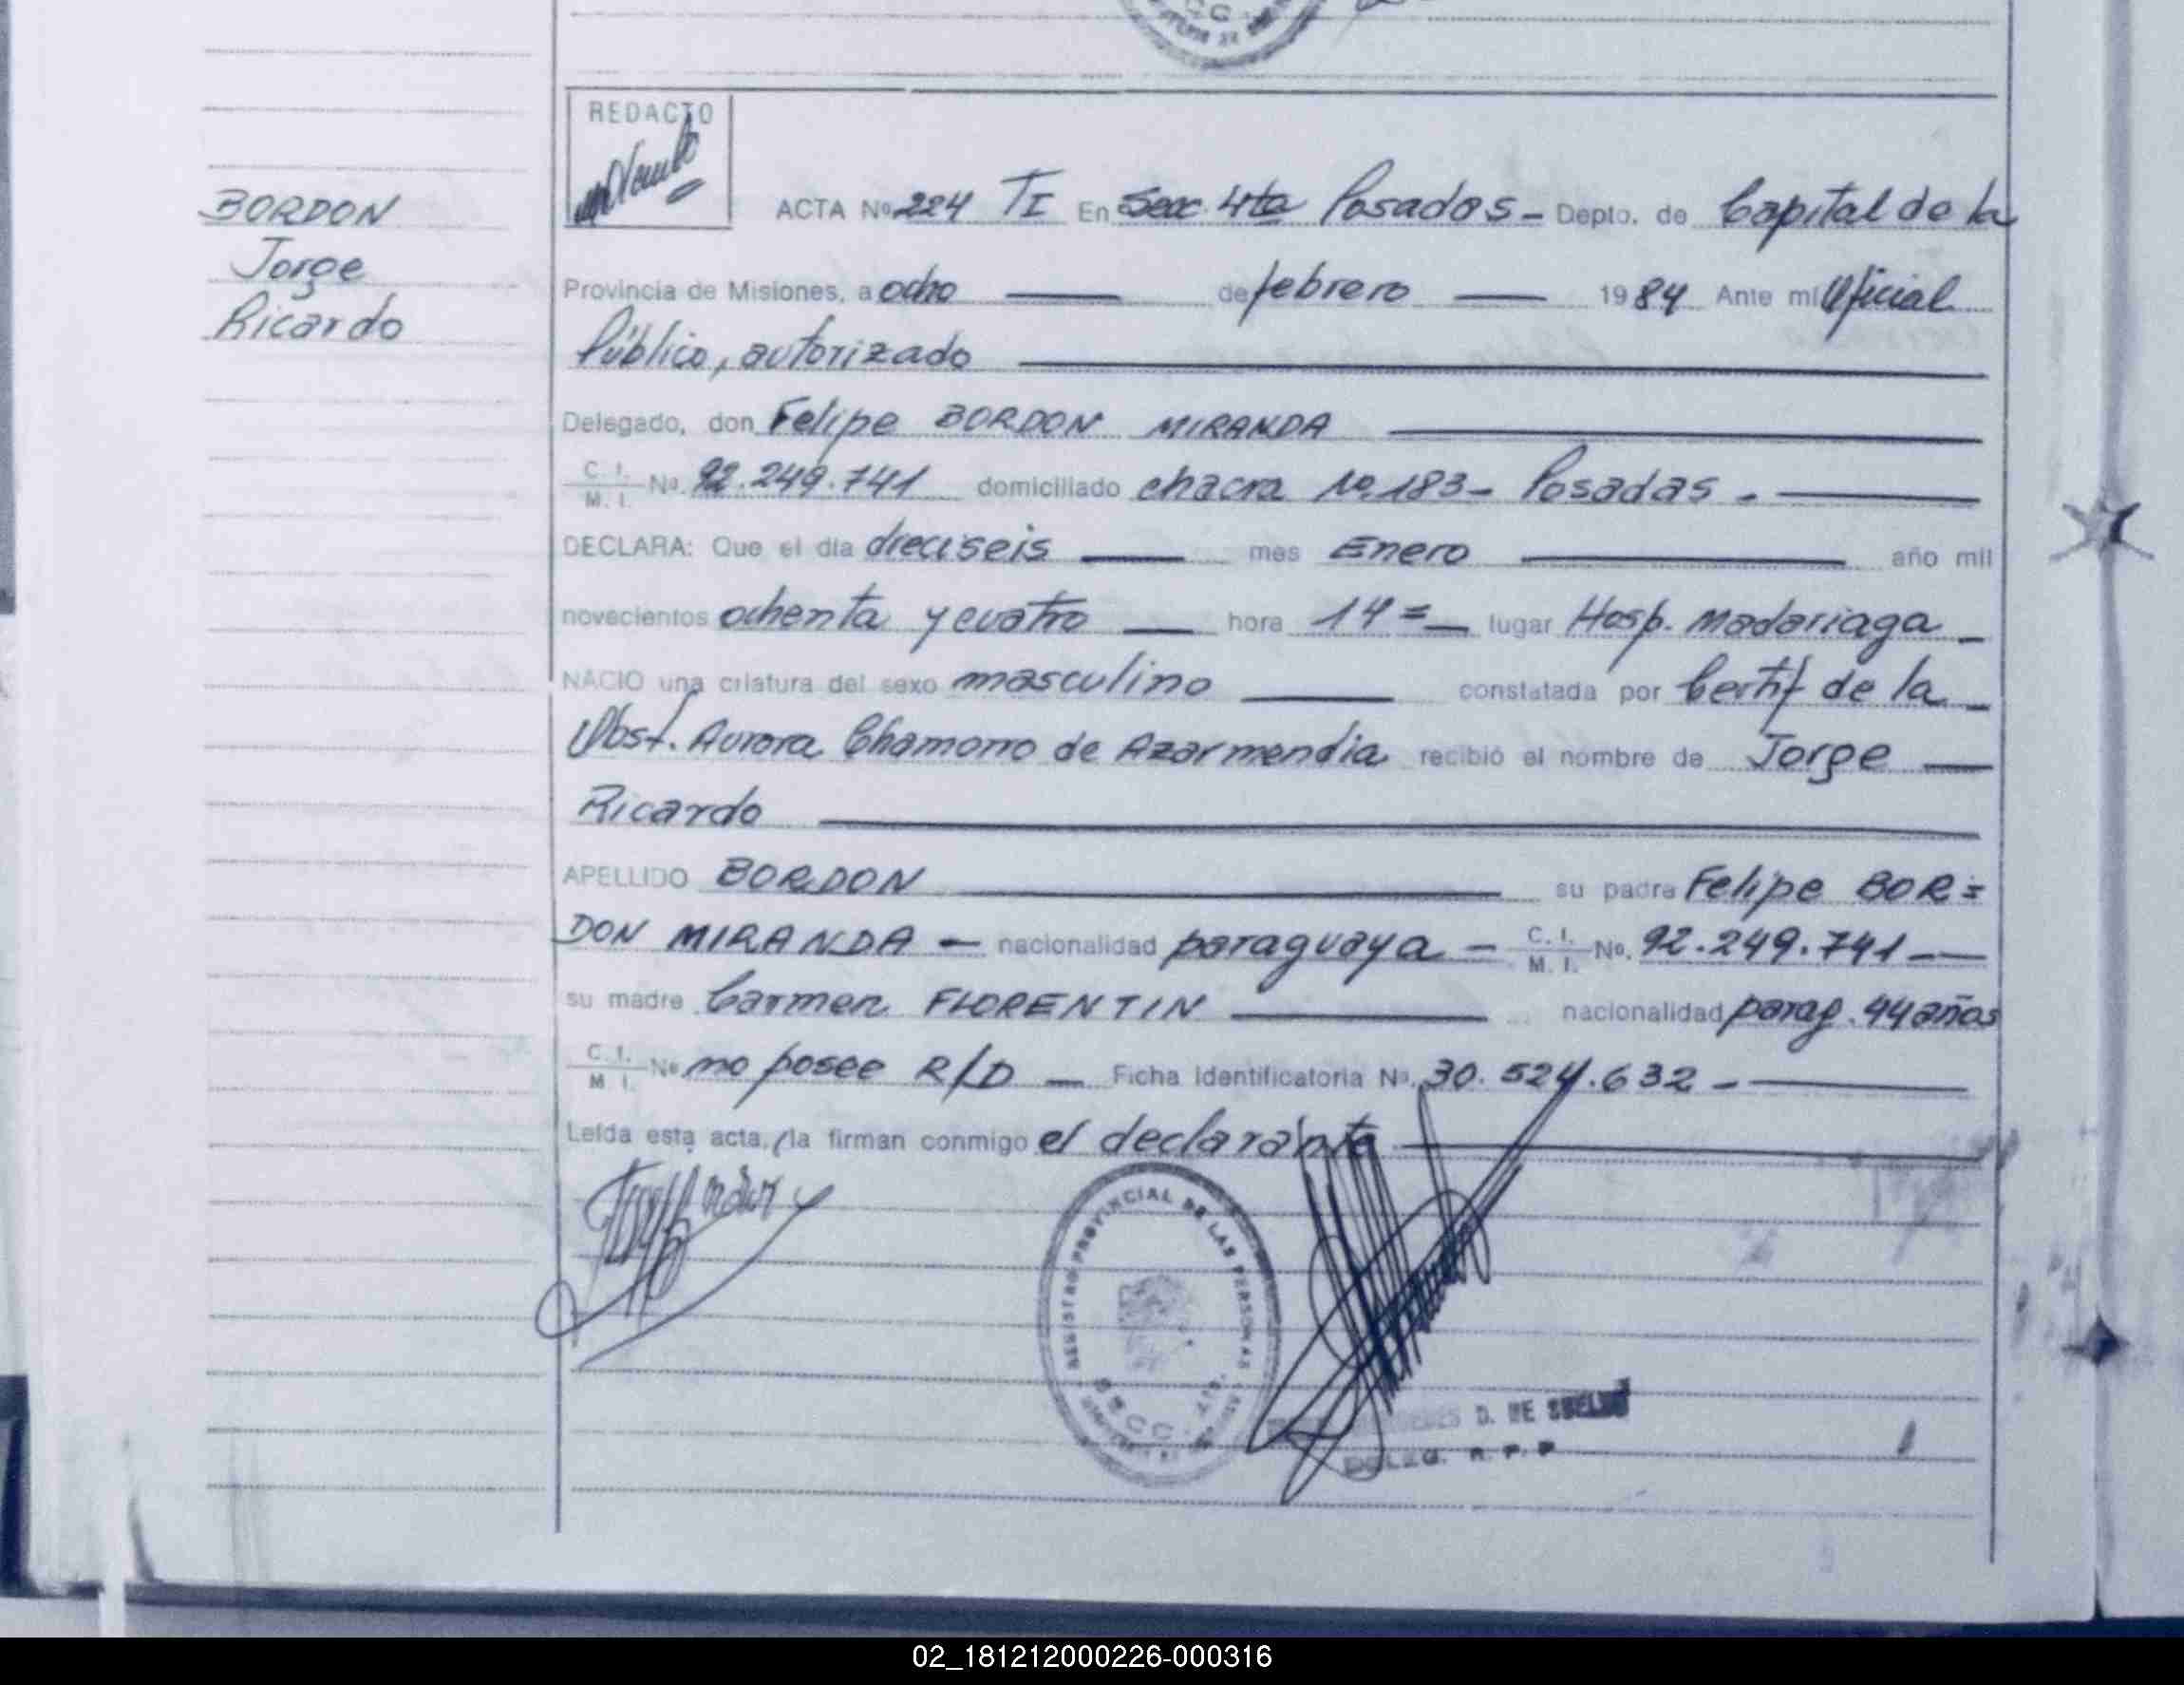 REDACTO
BORDON
Jorge
Ricardo
ACTA Nº 224 TI En Secc. 4ta Posadas - Depto. de Capital de la
Provincia de Misiones, a ocho de febrero 1984 Ante mí Oficial
Público, autorizado
Delegado, don Felipe BORDON MIRANDA
C. I. / M. I. Nº. 92.249.741 domiciliado chacra No. 183 - Posadas. -
DECLARA: Que el día dieciseis mes Enero año mil
novecientos ochenta y cuatro hora 14= lugar Hosp. Madariaga
NACIO una criatura del sexo masculino constatada por Certif de la
Obst. Aurora Chamorro de Azarmendia recibió el nombre de Jorge
Ricardo
APELLIDO BORDON su padre Felipe BOR=
DON MIRANDA - nacionalidad paraguaya - C. I. / M. I. No. 92.249.741
su madre Carmen FLORENTIN nacionalidad parag. 44 años
C. I. / M. I. Nº no posee R/D - Ficha Identificatoria Nº. 30.524.632 -
Leída esta acta, la firman conmigo el declarante
REGISTRO PROVINCIAL DE LAS PERSONAS
D. DE
DELEG. R. P. P
02_181212000226-000316